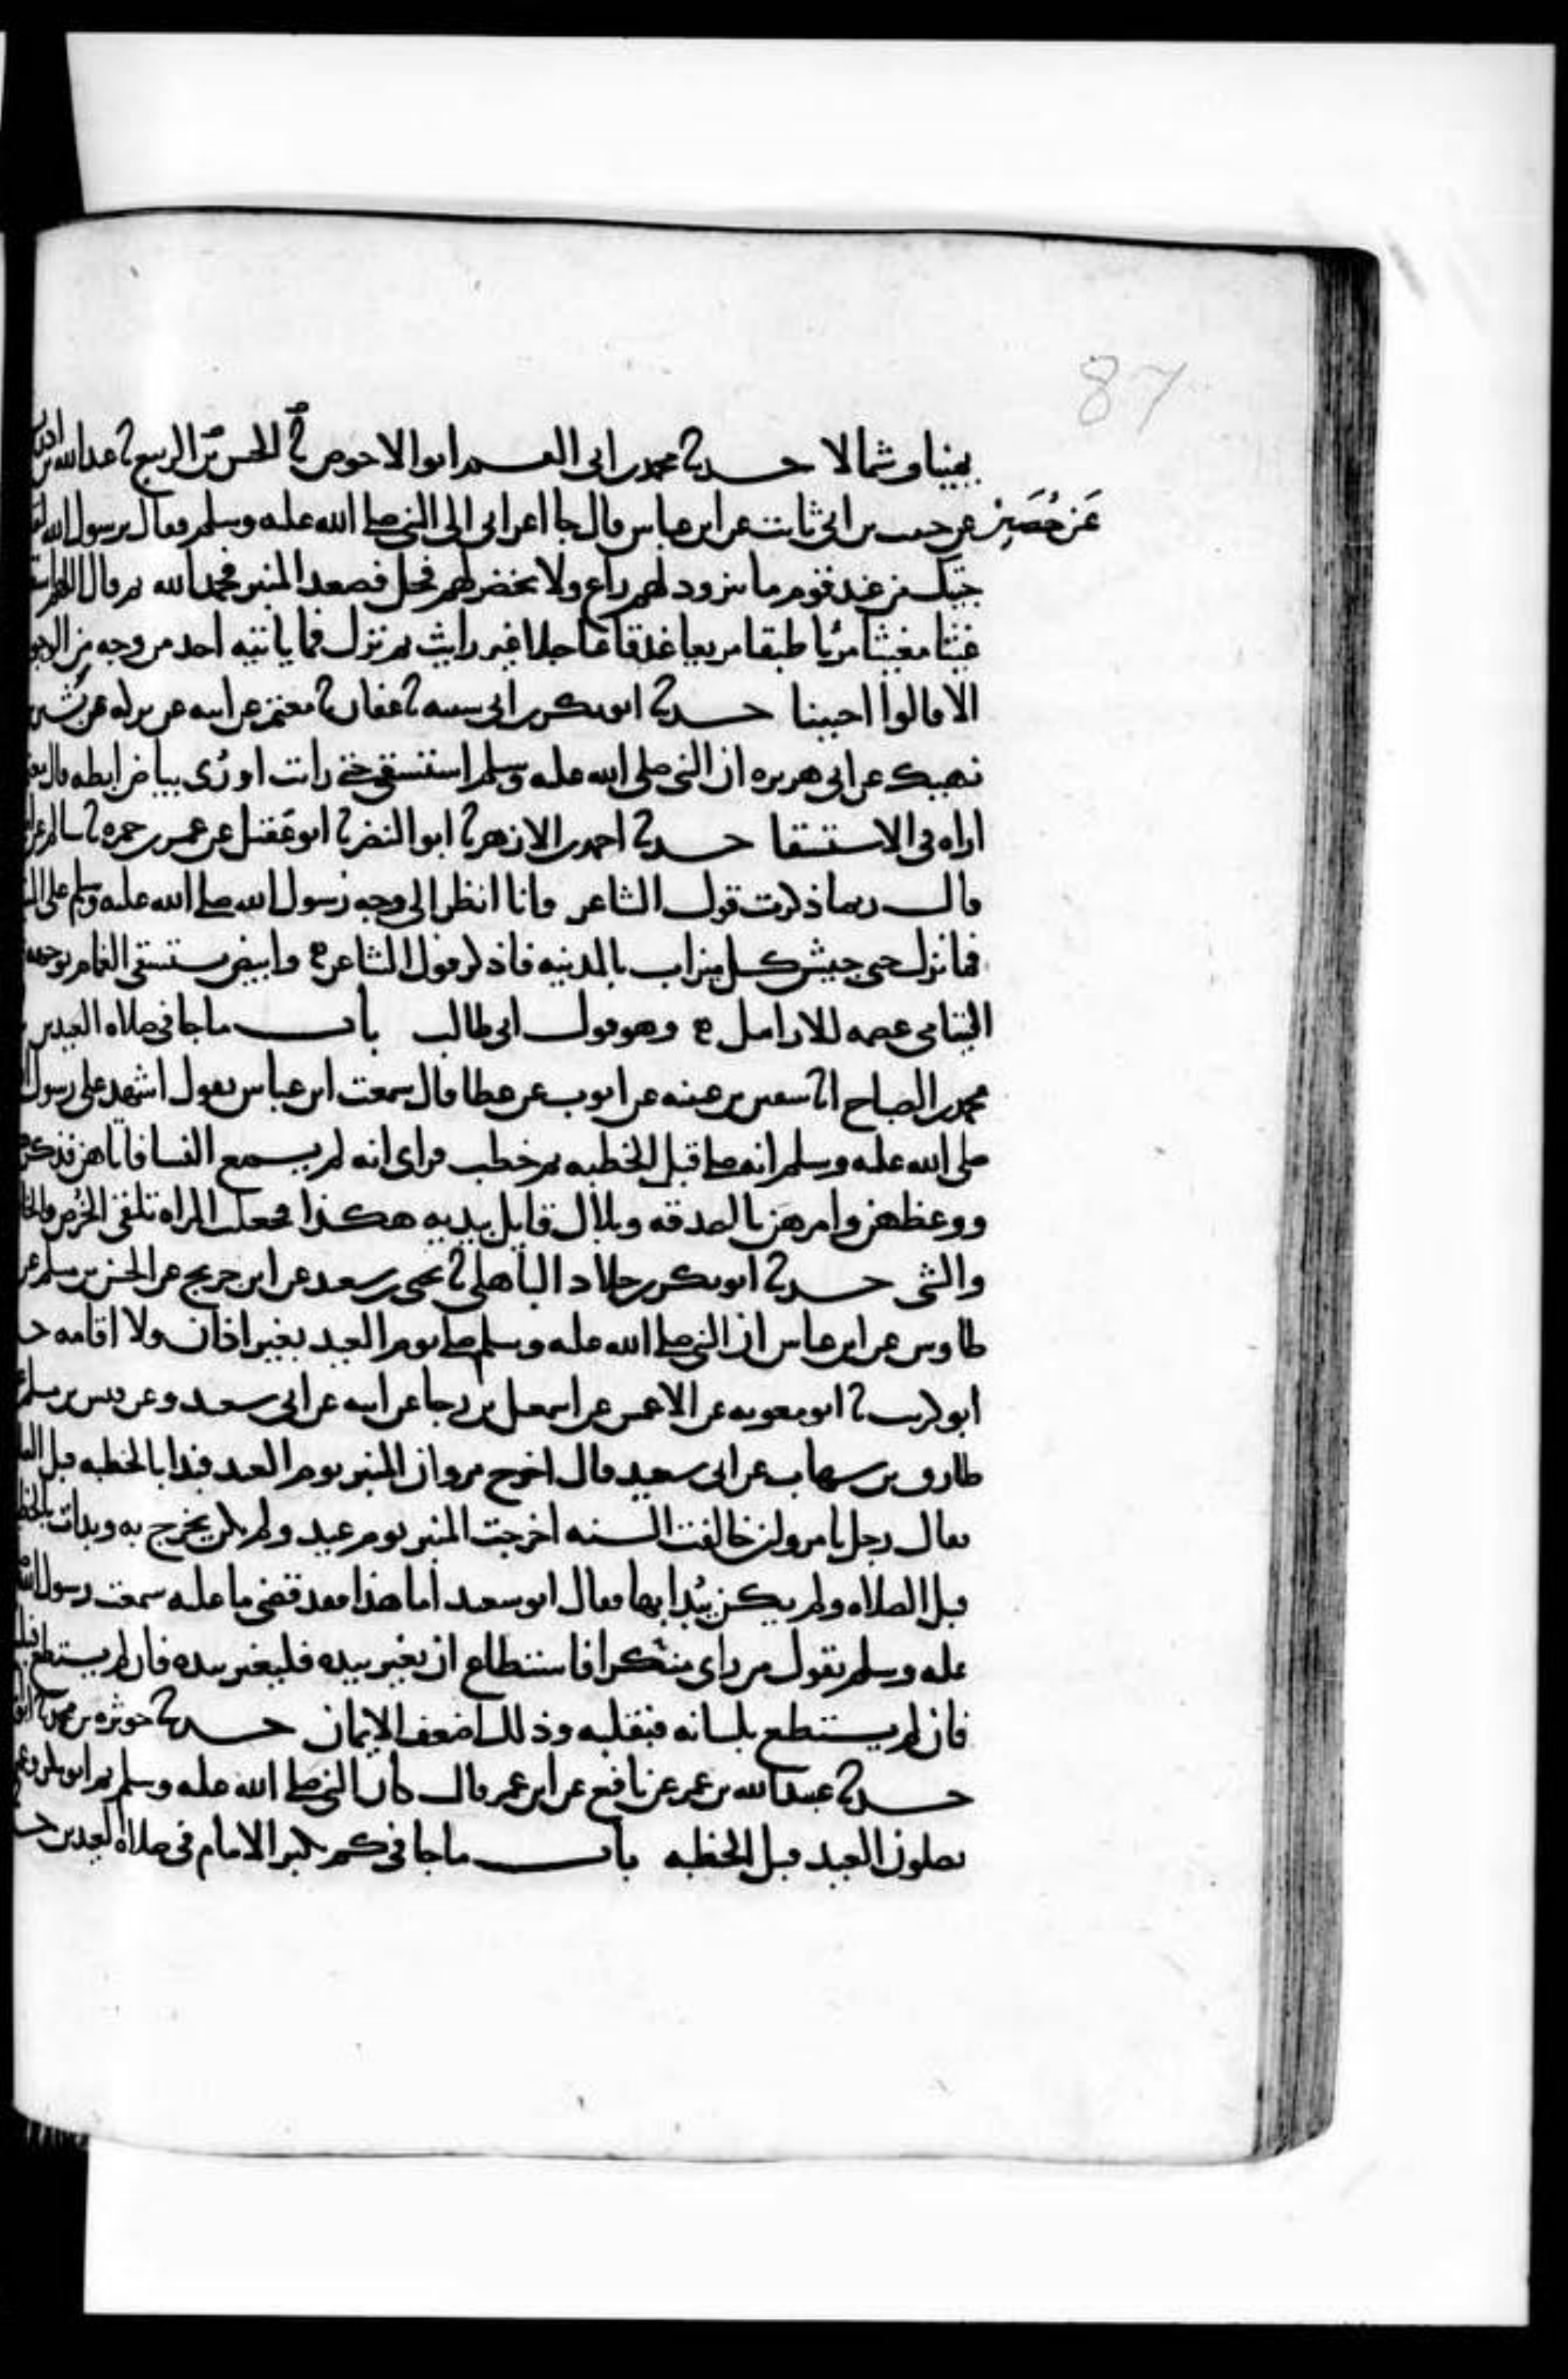 87
يمينا وشمالا حدثنا محمد بن ابى القسم ابو الاحوص ثنا الحسن بن الربيع ثنا عبد الله بن ادريس
عَن حُصَين عن حبيب بن ابى ثابت عن ابن عباس قال جا اعرابى الى النبى صلى الله عليه وسلم فقال يرسول الله لقد
جيتك من عند قوم ما يتزود لهم راع ولا يخضر لهم فحل فصعد المنبر فحمد الله ثم قال اللهم اسقنا
غيثا مغيثا مريا طبقا مريعا غدقا عاجلا غير رايث ثم نزل فما ياتيه احد من وجه من الوجوه
الا قالوا احيينا حدثنا ابو بكر بن ابى شيبه ثنا عفان ثنا معتمر عن ابيه عن بركه عن بشير بن
نهيك عن ابى هريره ان النبى صلى الله عليه وسلم استسقى حتى رايت او رُى بياض ابطه قال معتمر
اراه فى الاستسقا حدثنا احمد بن الازهر ثنا ابو النضر ثنا ابو عَقيل عن عمر بن حمزه ثنا سالم عن ابيه
قال ربما ذكرت قول الشاعر وانا انظر الى وجه رسول الله صلى الله عليه وسلم على المنبر
فما نزل حتى جيش كل ميزاب بالمدينه فاذكر قول الشاعر ه وابيض يستسقى الغمام بوجهه
اليتامى عصمه للارامل ه وهو قول ابى طالب باب ما جا فى صلاه العيدين
محمد بن الصباح انا سفين بن عيينه عن ايوب عن عطا قال سمعت ابن عباس يقول اشهد على رسول الله
صلى الله عليه وسلم انه صلى قبل الخطبه ثم خطب فراى انه لم يسمع النسا فاتاهن فذكرهن
ووعظهن وامرهن بالصدقه وبلال قايل بيديه هكذا فجعلت المراه تلقى الخُرص والخاتم
والشى حدثنا ابو بكر بن خلاد الباهلى ثنا يحيى بن سعيد عن ابن جريج عن الحسن بن مسلم عن
طاوس عن ابن عباس ان النبى صلى الله عليه وسلم صلى يوم العيد بغير اذان ولا اقامه حدثنا
ابو كريب ثنا ابو معويه عن الاعمش عن اسمعيل بن رجا عن ابيه عن ابى سعيد وعن قيس بن مسلم عن
طارق بن شهاب عن ابى سعيد قال اخرج مروان المنبر يوم العيد فبدا بالخطبه قبل الصلاه
فقال رجل يا مروان خالفت السنه اخرجت المنبر يوم عيد ولم يكن يخرج به وبدات بالخطبه
قبل الصلاه ولم يكن يُبدا بها فقال ابو سعيد اما هذا فقد قضى ما عليه سمعت رسول الله صلى الله
عليه وسلم يقول من راى منكرا فاستطاع ان يغير بيده فليغير بيده فان لم يستطع فبلسانه
فان لم يستطع بلسانه فبقلبه وذلك اضعف الايمان حدثنا حوثره بن محمد ثنا ابو
حدثنا عبيد الله بن عمر عن نافع عن ابن عمر قال كان النبى صلى الله عليه وسلم ثم ابو بكر وعمر
يصلون العيد قبل الخطبه باب ما جا فى كم يكبر الامام فى صلاه العيدين حدثنا